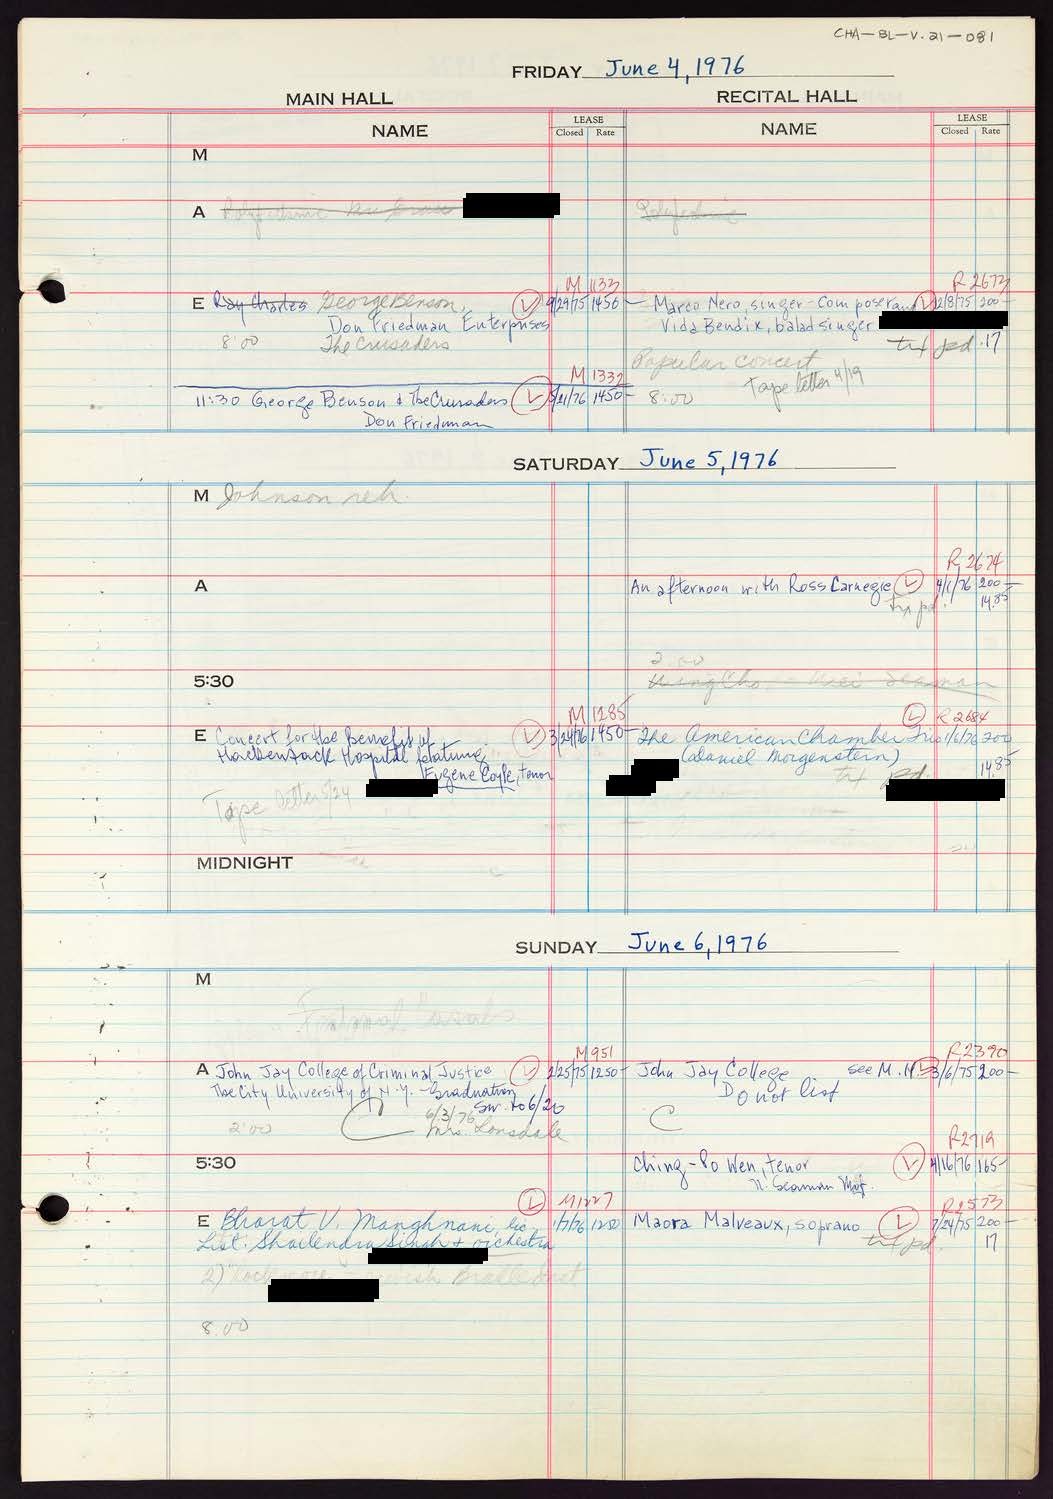 CHA-BL-V.21-081
FRIDAY June 4, 1976
MAIN HALL RECITAL HALL
NAME LEASE Closed Rate NAME LEASE Closed Rate
M
A Polytechnic Polytechnic
M 1133 R 2673
E Ray Charles George Benson, L 9/29/75 1450- Marco Nero, singer-composer and L 12/8/75 200-
Don Friedman Enterprises Vida Bendix, balad singer
8:00 The Crusaders trx pd. 17
Popular concert
M 1332 Tape letter 4/19
11:30 George Benson & The Crusaders L 5/21/76 1450- 8:00
Don Friedman
SATURDAY June 5, 1976
M Johnson reh.
R 2674
A An afternoon with Ross Carnegie L 4/1/76 200-
trx pd. 14.85
2:00
5:30 Seaman
M 1285 L R 2684
E Concert for the Benefit of L 3/24/76 1450- The American Chamber Trio 1/6/76 200
Hackensack Hospital featuring (Daniel Morgenstern)
Eugene Coyle, tenor 14.85
Tape letter 5/24 trx pd.
MIDNIGHT
SUNDAY June 6, 1976
M
Festival Casals
M 951 R 2390
A John Jay College of Criminal Justice L 2/25/75 1250- John Jay College see M.H. L 3/6/75 200-
The City University of N.Y. - Graduation Do not list
sw. to 6/20
6/3/76 C
2:00 C Mrs. Lonsdale
R2719
5:30 Ching-Po Wen, tenor L 4/16/76 165-
N. Seaman Mgt.
L M1227 R2573
E Bharat V. Manghnani, 1/7/76 1250 Maora Malveaux, soprano L 7/24/75 200-
List. Shailendra Singh & orchestra trx pd. 17
2)
8:00